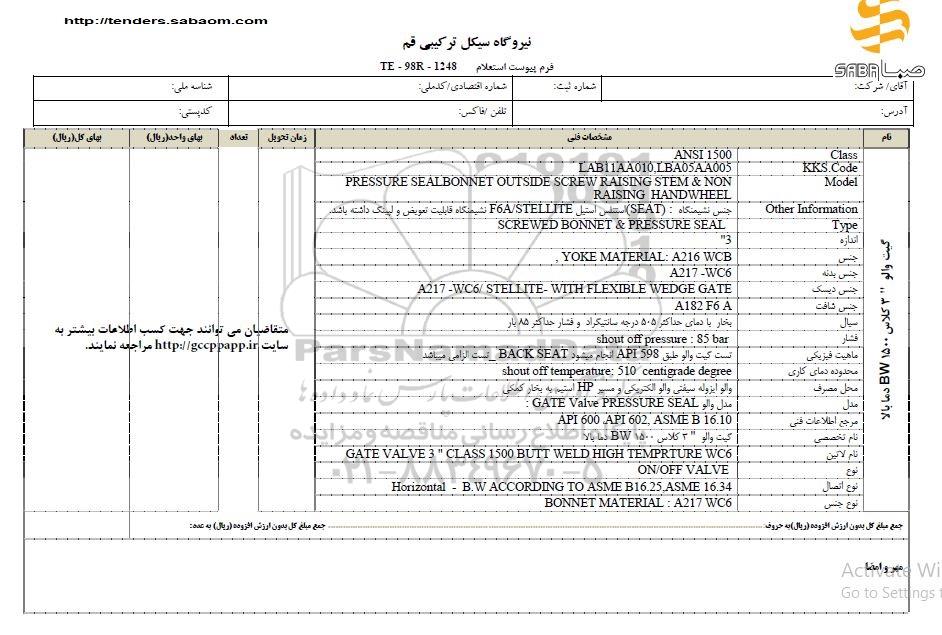 http://tenders.sabaom.com
صبا SABA
نیروگاه سیکل ترکیبی قم
فرم پیوست استعلام TE - 98R - 1248
آقای/ شرکت: شماره ثبت: شماره اقتصادی/کدملی: شناسه ملی:
آدرس: تلفن /فاکس: کدپستی:
نام مشخصات فنی زمان تحویل تعداد بهای واحد(ریال) بهای کل(ریال)
گیت والو " ۳ کلاس ۱۵۰۰ BW دما بالا
Class ANSI 1500
KKS.Code LAB11AA010,LBA05AA005
Model PRESSURE SEALBONNET OUTSIDE SCREW RAISING STEM & NON
RAISING HANDWHEEL
Other Information جنس نشیمنگاه : (SEAT)استنلس استیل F6A/STELLITE نشیمنگاه قابلیت تعویض و لپینگ داشته باشد.
Type SCREWED BONNET & PRESSURE SEAL
اندازه 3"
جنس YOKE MATERIAL: A216 WCB ,
جنس بدنه A217 -WC6
جنس دیسک A217 -WC6/ STELLITE- WITH FLEXIBLE WEDGE GATE
جنس شافت A182 F6 A
سیال بخار با دمای حداکثر ۵۰۵ درجه سانتیگراد و فشار حداکثر ۸۵ بار
فشار shout off pressure : 85 bar
ماهیت فیزیکی تست گیت والو طبق API 598 انجام میشود BACK SEAT _تست الزامی میباشد
محدوده دمای کاری shout off temperature: 510 centigrade degree
محل مصرف والو ایزوله سیفتی والو الکتریکی و مسیر HP استیم به بخار کمکی
مدل مدل والو GATE Valve PRESSURE SEAL :
مرجع اطلاعات فنی API 600 ,API 602, ASME B 16.10
نام تخصصی گیت والو " ۳ کلاس ۱۵۰۰ BW دما بالا
نام لاتین GATE VALVE 3 " CLASS 1500 BUTT WELD HIGH TEMPRTURE WC6
نوع ON/OFF VALVE
نوع اتصال Horizontal - B.W ACCORDING TO ASME B16.25,ASME 16.34
نوع جنس BONNET MATERIAL : A217 WC6
متقاضیان می توانند جهت کسب اطلاعات بیشتر به
سایت http://gccppapp.ir مراجعه نمایند.
جمع مبلغ کل بدون ارزش افزوده (ریال)به حروف: جمع مبلغ کل بدون ارزش افزوده (ریال) به عدد:
مهر و امضا
ParsNamadData
پایگاه اطلاع رسانی مناقصه و مزایده
۰۲۱-۸۸۳۴۹۶۷۰-۵
Activate Wi
Go to Settings t